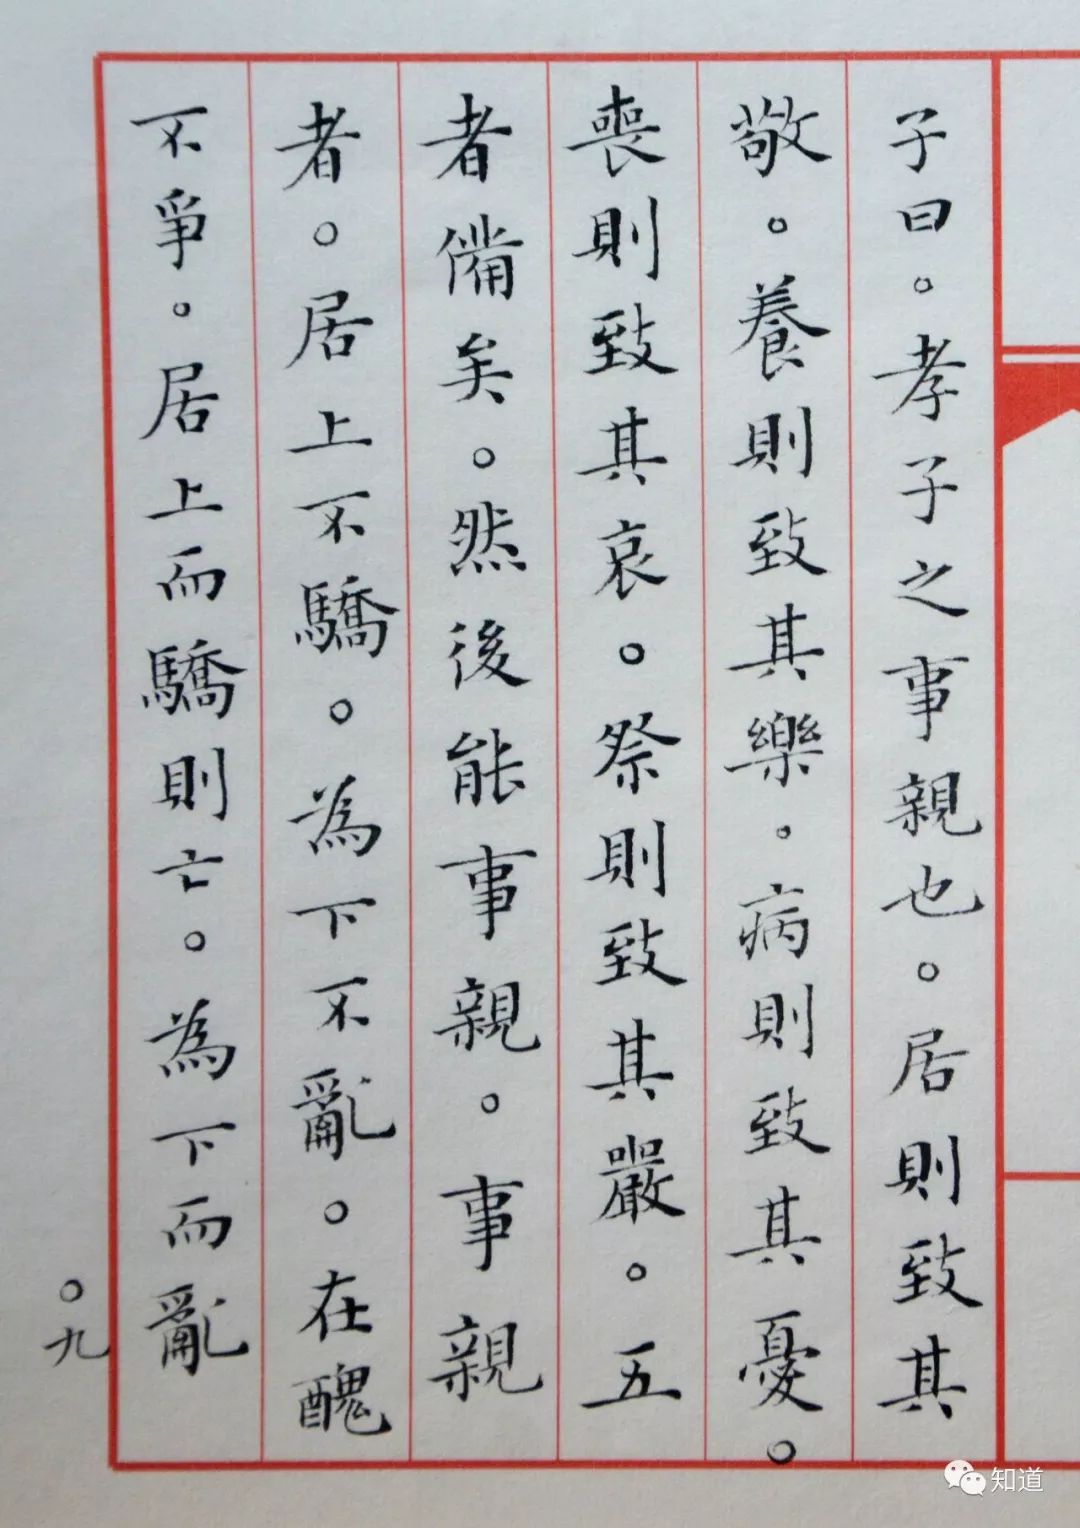 子曰。孝子之事親也。居則致其
敬。養則致其樂。病則致其憂。
喪則致其哀。祭則致其嚴。五
者備矣。然後能事親。事親
者。居上不驕。為下不亂。在醜
不爭。居上而驕則亡。為下而亂
。九
知道